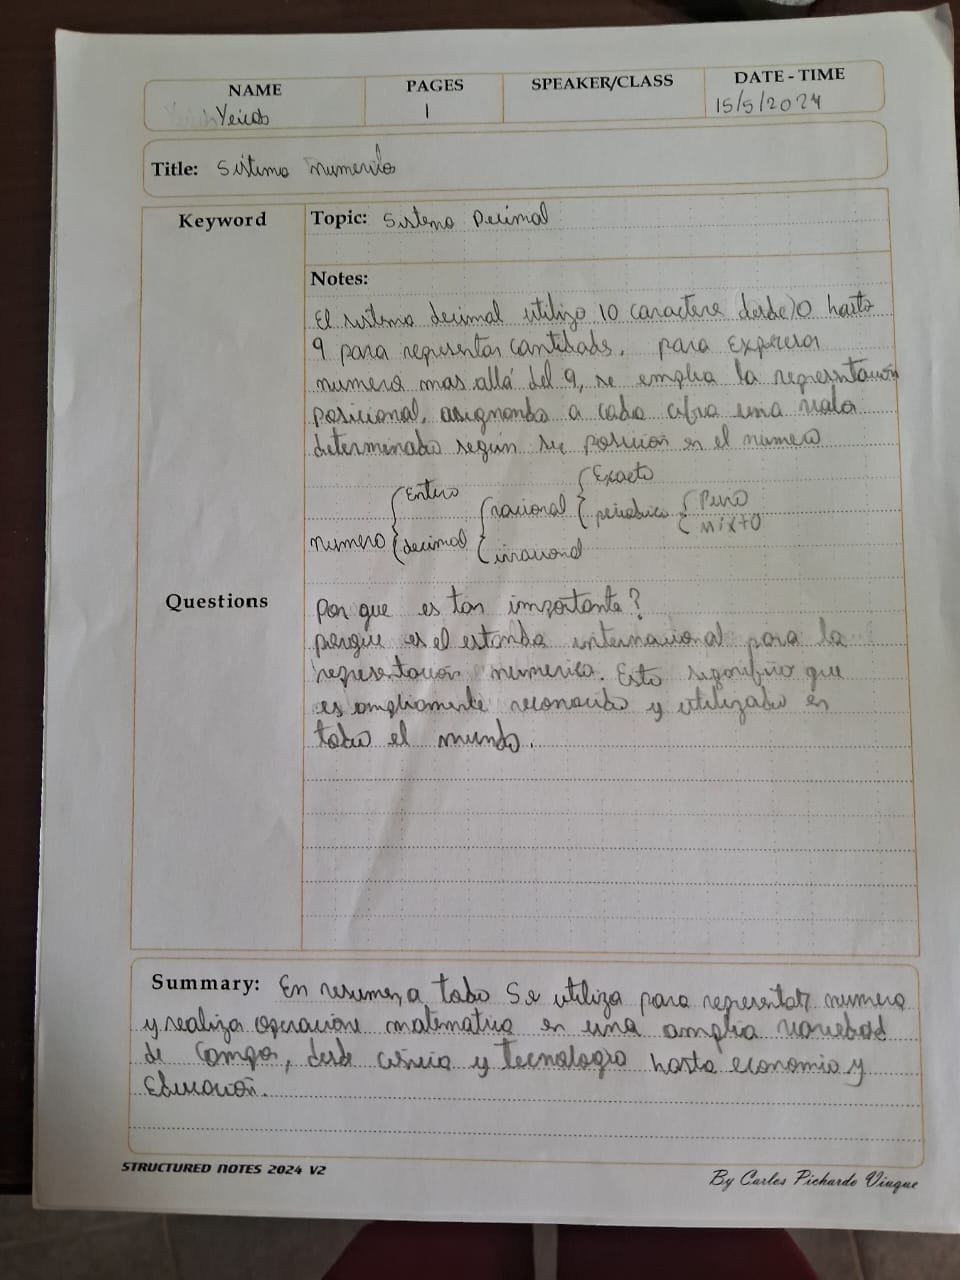 NAME PAGES SPEAKER/CLASS DATE - TIME
Yeicob 1 15/5/2024
Title: Sistema numerico
Keyword Topic: Sistema Decimal
Notes:
El sistema decimal utiliza 10 caractere desde 0 hasta
9 para representar cantidads, para expresar
numero mas allá del 9, se emplea la representación
posicional, asignando a cada cifra una valor
determinado según su posicion en el numero
Exacto
Entero racional periodico Puro
MixTO
numero decimal irracional
Questions por que es tan importante?
porque es el estanda internacional para la
representación numerica. Esto significa que
es ampliamente reconocido y utilizado en
todo el mundo.
Summary: En resumen, a todo Se utiliza para representar numero
y realiza operacione matematica en una amplia variedad
de campos, desde ciencia y tecnologia hasta economia y
Educación.
STRUCTURED NOTES 2024 V2
By Carlos Pichardo Viuque